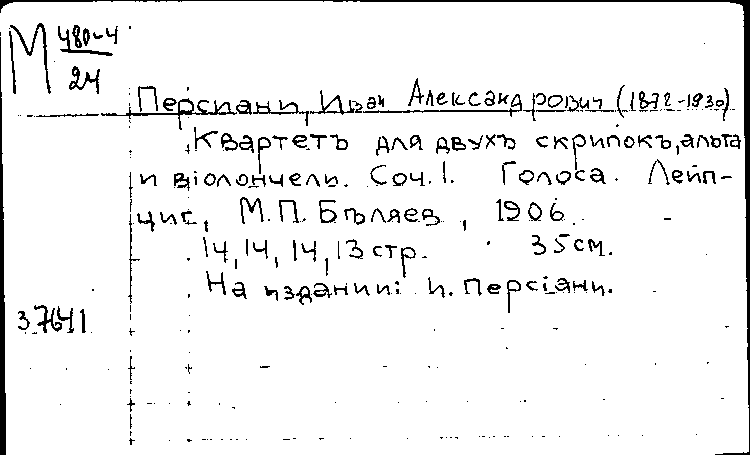 М 480-4
24
Персиани, Иван Александрович (1872-1930)
Квартетъ для двухъ скрипокъ, альта
и віолончели. Соч. 1. Голоса. Лейп-
циг, М.П. Бѣляев, 1906.
14, 14, 14, 13 стр. 35 см.
На издании: И. Персіани.
37641